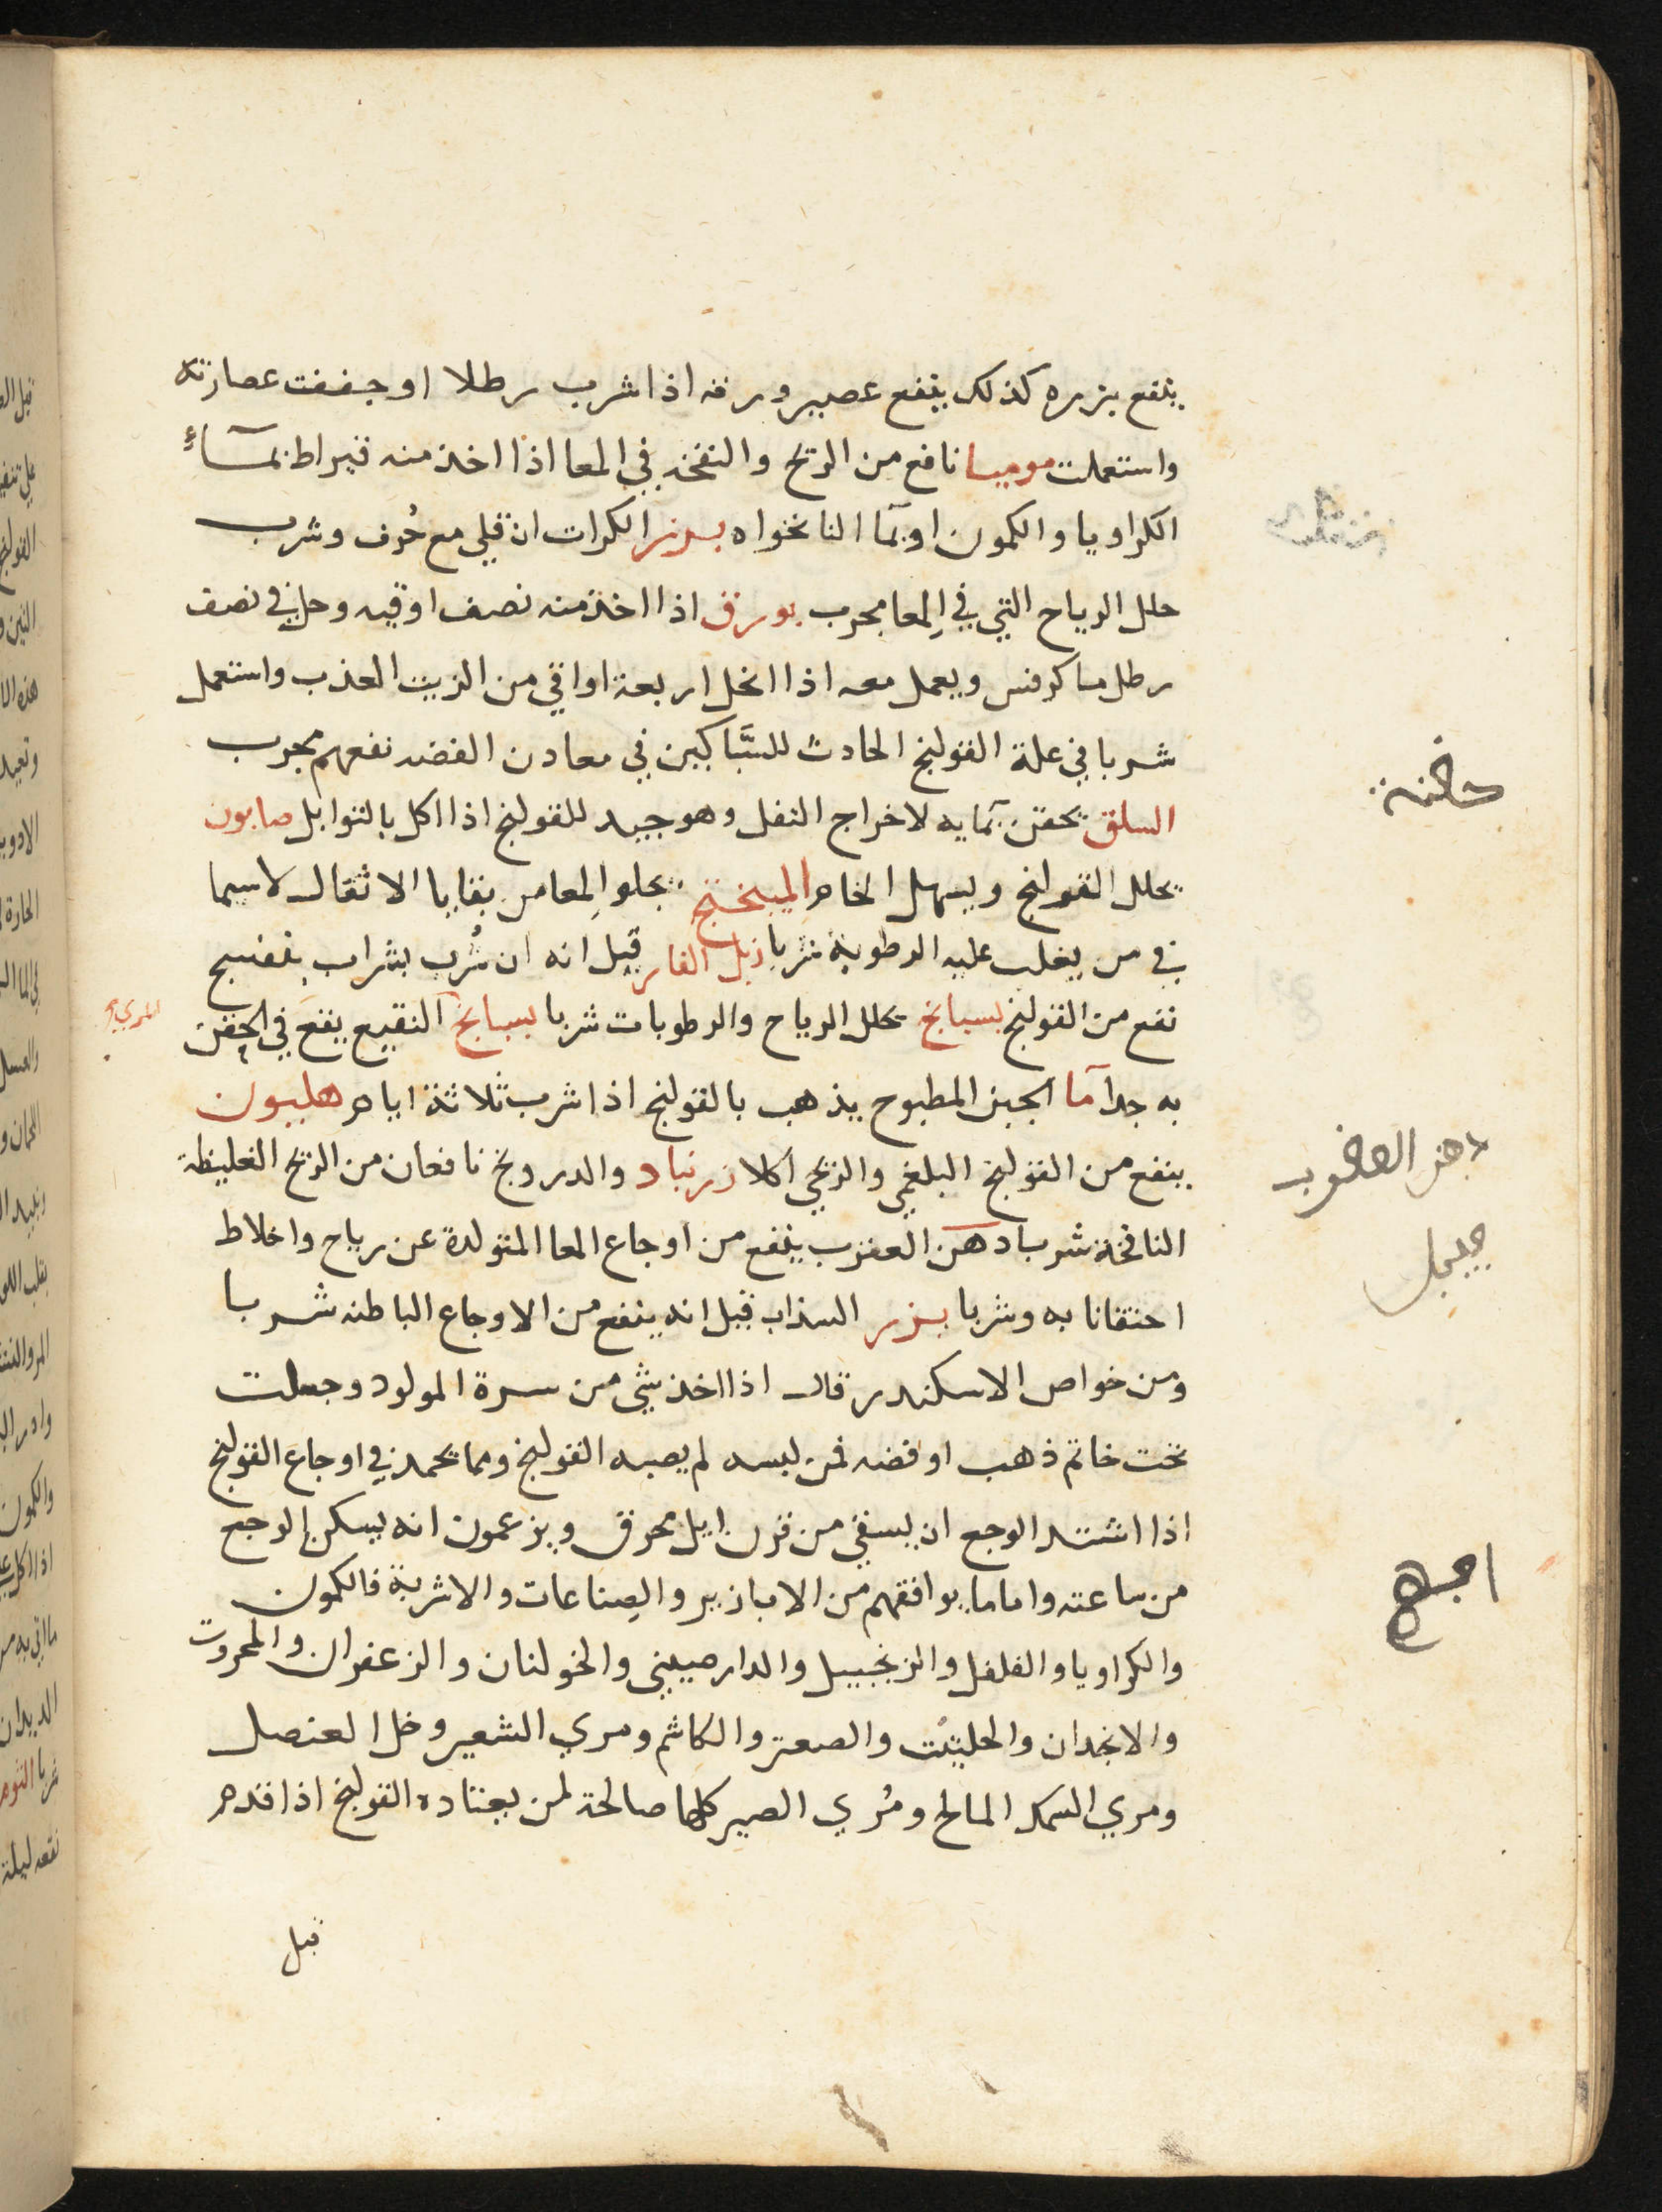 ينفع بزره كذلك ينفع عصير ورقه اذا شرب رطلا او جففت عصارته
واستعملت موميا نافع من الريح والنفخه في المعا اذا اخذ منه قيراط بمآءِ
الكراويا والكمون او بمآ النانخواه بزر الكراث ان قلي مع حُرف وشرب
حلل الرياح التي في المعا مجرب بورق اذا اخذ منه نصف اوقيه وحل في نصف
رطل ما كرفس ويعمل معه اذا انحل اربعة اواقي من الزيت العذب واستعمل
شربا في علة القولنج الحادث للسَّباكين في معادن الفضه نفعهم مجرب
السلق يحقن بمآيه لاخراج الثفل وهو جيد للقولنج اذا اكل بالتوابل صابون
يحلل القولنج ويسهل الخام الميبختج يجلو المعا من بقايا الاثقال لاسيما
في من يغلب عليه الرطوبة شربا زبل الفار قيل انه ان شُرب بشراب بنفسج
نفع من القولنج بسبايج يحلل الرياح والرطوبات شربا بسبايج النقيع ينفع في الحقن
المري
به جدا مآ الجبن المطبوح يذهب بالقولنج اذا شرب ثلاثة ايام هليون
ينفع من القولنج البلغمي والريحي اكلا زرنباد والدرونج نافعان من الريح الغليظة
النافخة شربا دهن العقرب ينفع من اوجاع المعا المتولدة عن رياح واخلاط
احتقانا به وشربا بزر السذاب قيل انه ينفع من الاوجاع الباطنه شربا
ومن خواص الاسكندر قال اذا اخذ شي من سرة المولود وجعلت
تحت خاتم ذهب او فضه فمن لبسه لم يصبه القولنج ومما يحمد في اوجاع القولنج
اذا اشتد الوجع ان يسقي من قرن ايل محرق ويزعمون انه يسكن الوجع
من ساعته واما ما يوافقهم من الابازير والصناعات والاشربة فالكمون
والكراويا والفلفل والزنجبيل والدارصيني والخولنان والزعفران والمحروت
والانجدان والحلتيت والصعتر والكاشم ومري الشعير وخل العنصل
ومري السمك المالح ومُري الصير كلها صالحة لمن يعتاده القولنج اذا قدم
قبل
حقنة
دهن العقرب